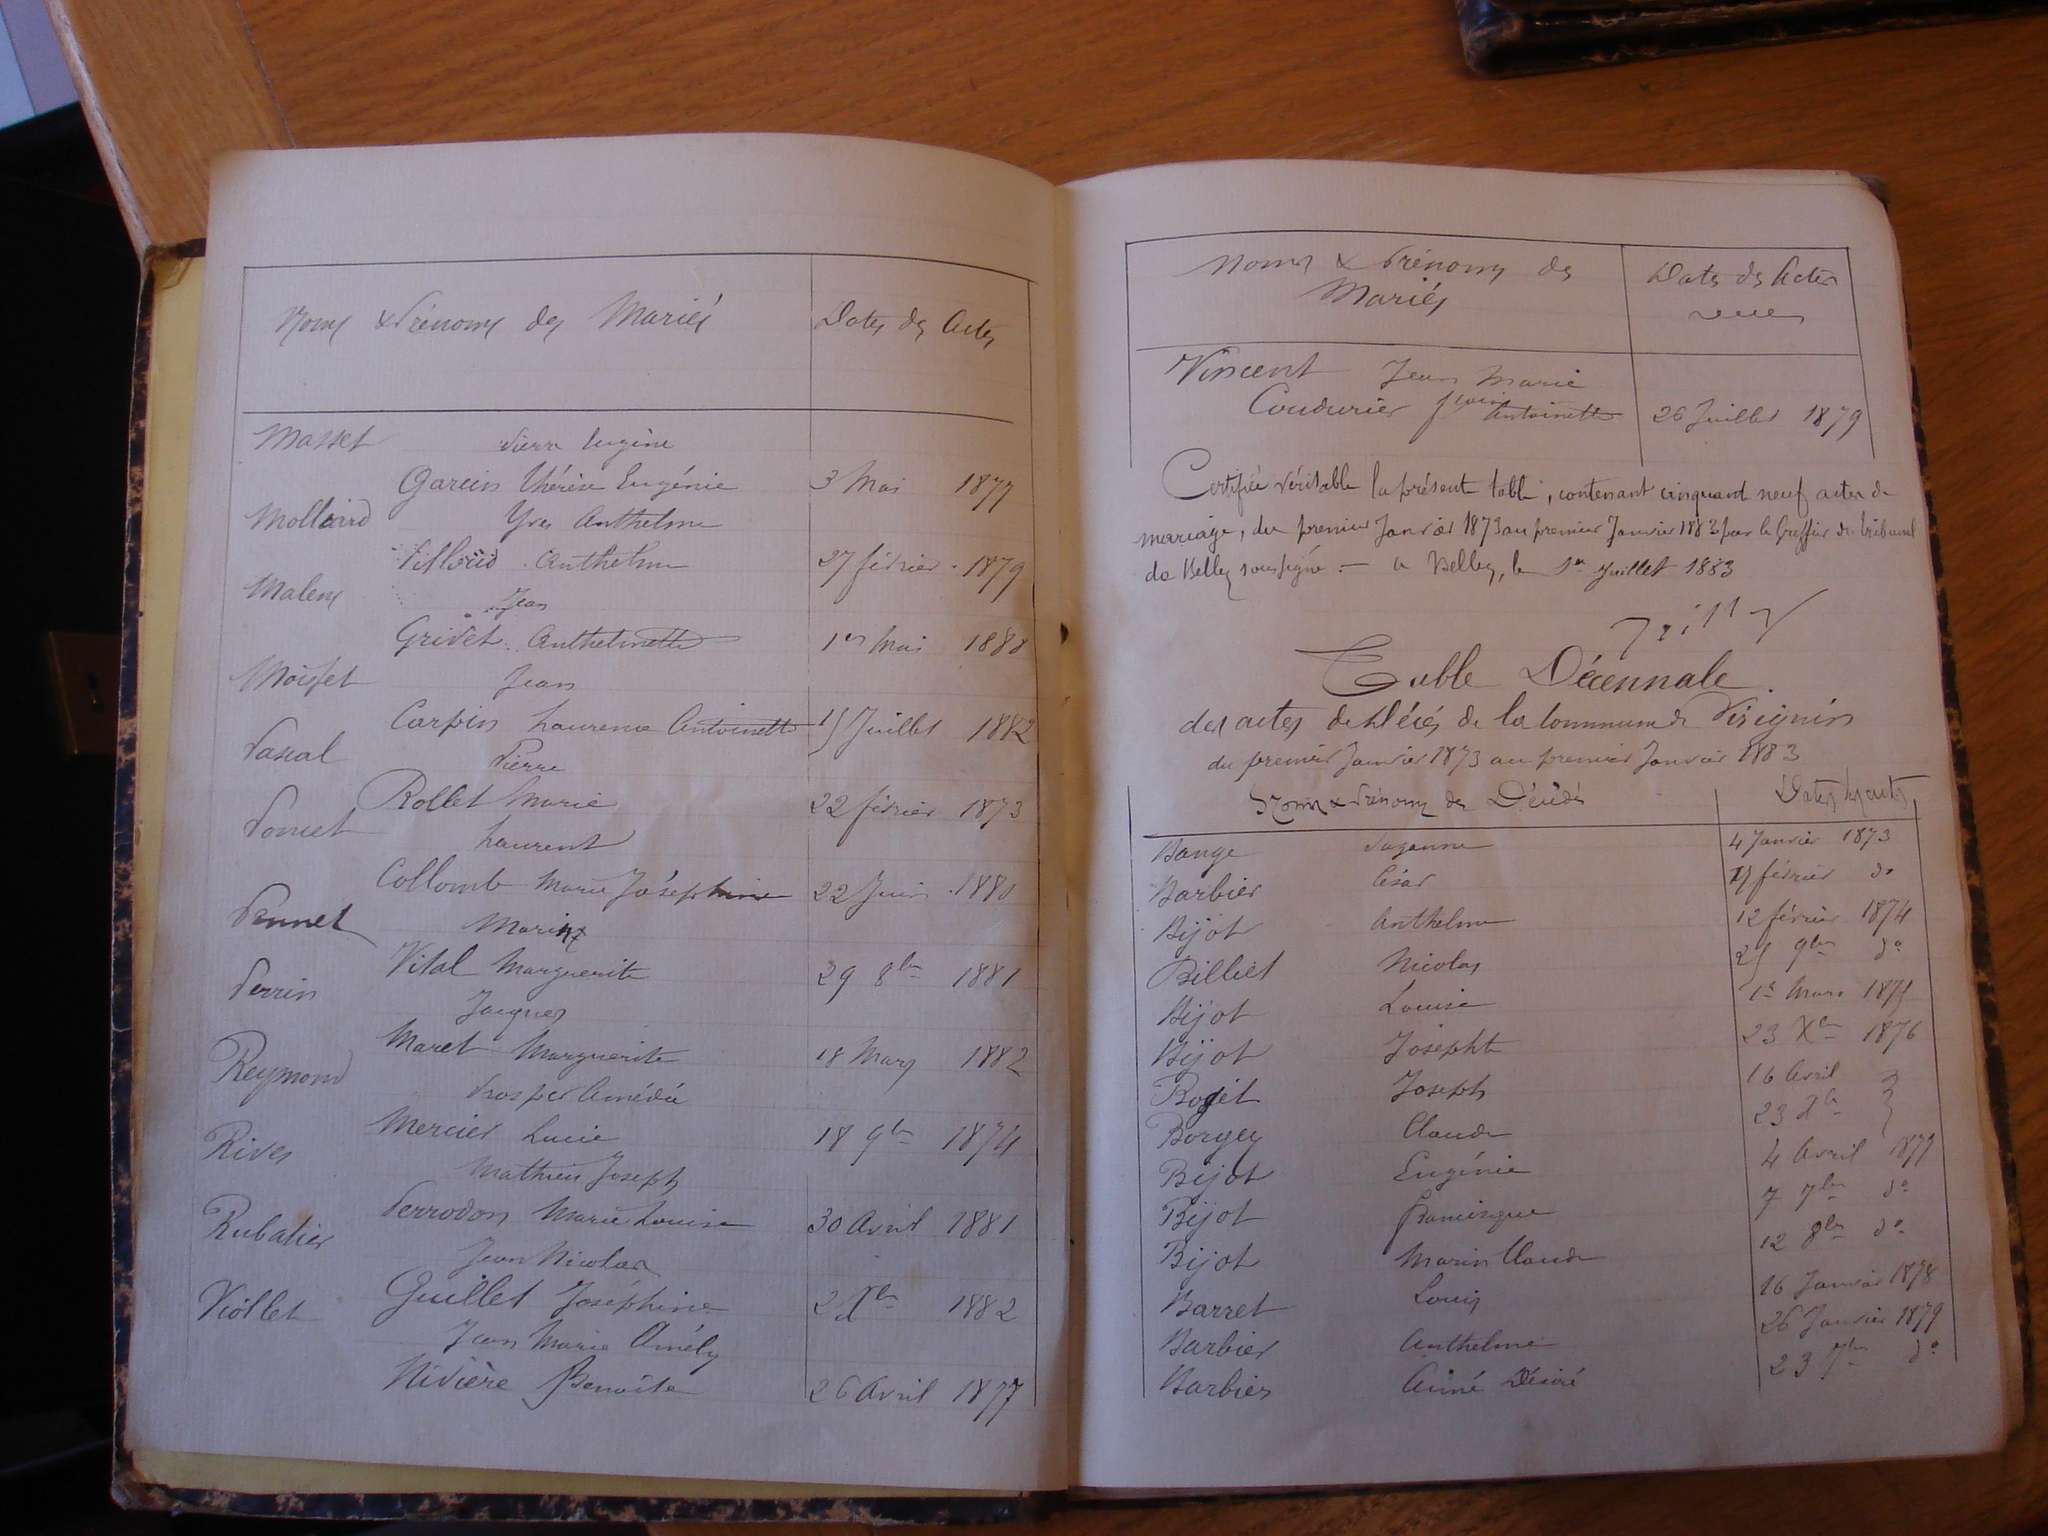 Noms & Prénoms des Mariés Dates des Actes
Masset Pierre Eugène
Garcin Thérèse Eugénie 3 Mai 1877
Mollard Yves Anthelme
Anthelme 27 février 1879
Jean
Grivet Anthelmette 1er Mai 1880
Moisset Jean
Carpin Laurence Antoinette 15 Juillet 1882
Pascal Pierre
Rollet Marie 22 février 1873
Poncet Laurent
Collomb Marie Joséphine 22 Juin 1880
Marin
Vital Marguerite 29 8bre 1881
Perrin Jacques
Maret Marguerite 18 Mars 1882
Reymond Prosper Amédée
Mercier Lucie 18 9bre 1874
Rives Mathieu Joseph
Perrodon Marie Louise 30 Avril 1881
Rubatier Jean Nicolas
Guillet Joséphine 2 Xbre 1882
Viollet Jean Marie Amély
Rivière Benoite 26 Avril 1877
Noms & Prénoms des Dates des Actes
Mariés
Vincent Jean Marie
Coudurier Antoinette 26 Juillet 1879
Certifiée véritable la présente table, contenant cinquant neuf actes de
mariage, du premier Janvier 1873 au premier Janvier 1883 par le Greffier du tribunal
de Belley soussigné. — a Belley, le 1er Juillet 1883
Table Décennale
des actes de décès de la commune de Virignin
du premier Janvier 1873 au premier Janvier 1883
Noms & Prénoms des Décédés Dates des actes
Bange Suzanne 4 Janvier 1873
Barbier César février do
Bijot Anthelme 12 février 1874
Billiet Nicolas 25 9bre do
Bijot Louise 1er Mars 1875
Bijot Josephte 23 Xbre 1876
Joseph 16 Avril
Borgey Claude 23 Xbre
Bijot Eugénie 4 Avril 1877
Bijot 7 7bre do
Bijot Marin Claude 12 8bre do
Barret Louis 16 Janvier 1878
Barbier Anthelme 26 Janvier 1879
Barbier Aimé Désiré 23 do